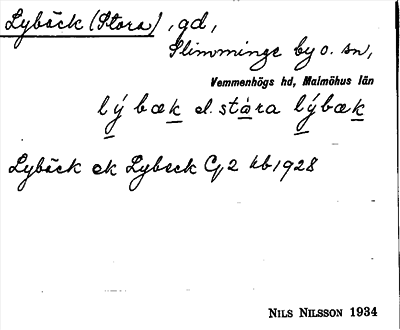 Lybäck (Stora), gd,
Slimminge by o. sn,
Vemmenhögs hd, Malmöhus län
lý bæk el. stóra lýbæk
Lybäck ek Lybeck C,2 kb 1928
NILS NILSSON 1934